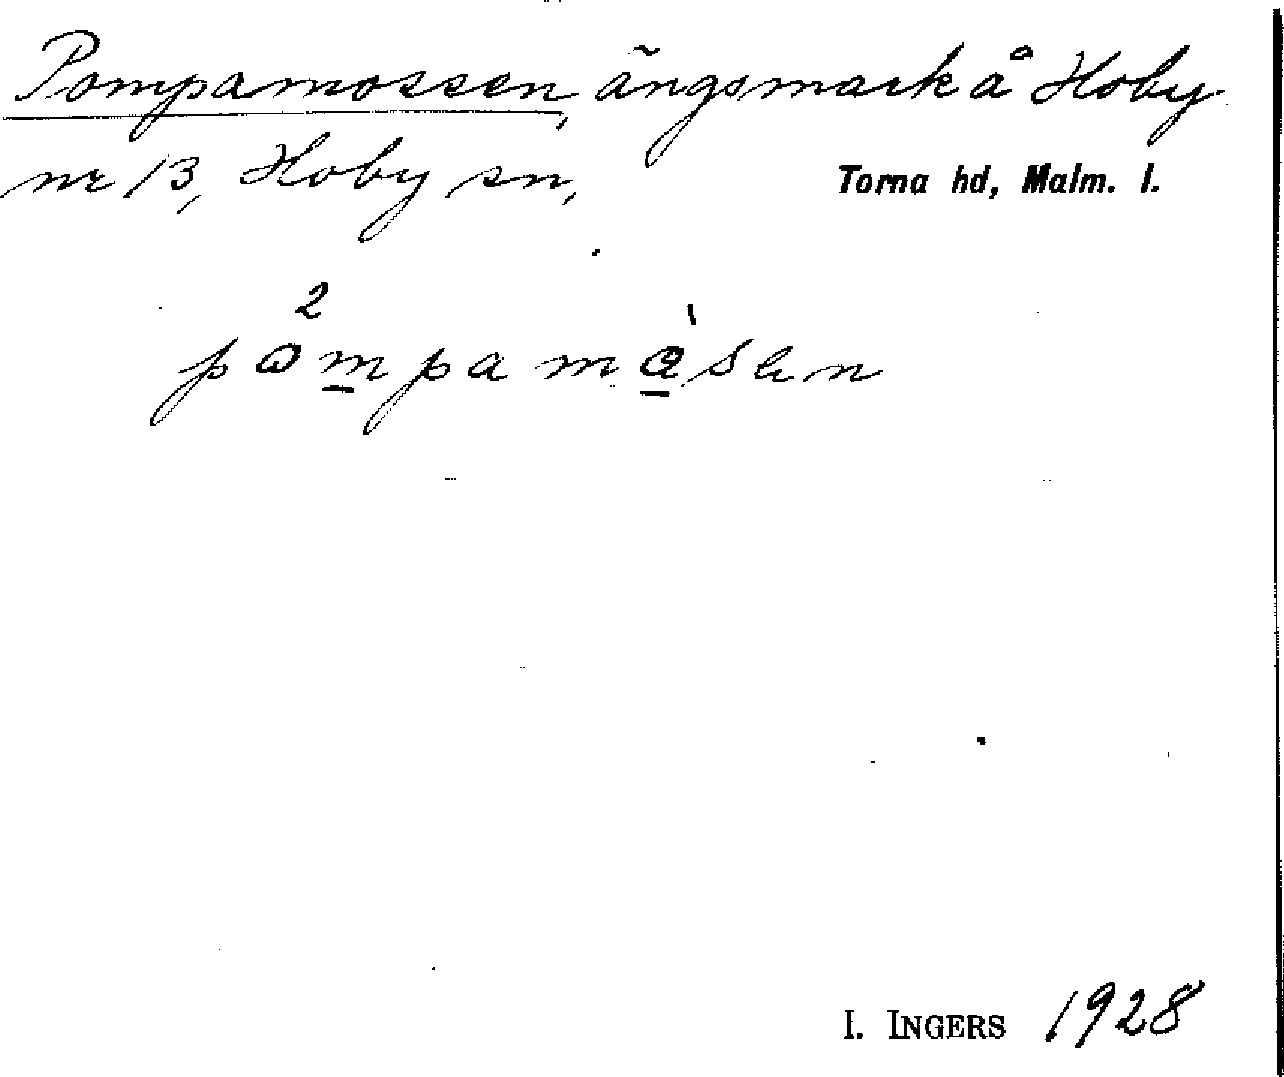 Pompamossen, ängsmark å Hoby
nr 13, Hoby sn, Torna hd, Malm. l.
I. INGERS 1928